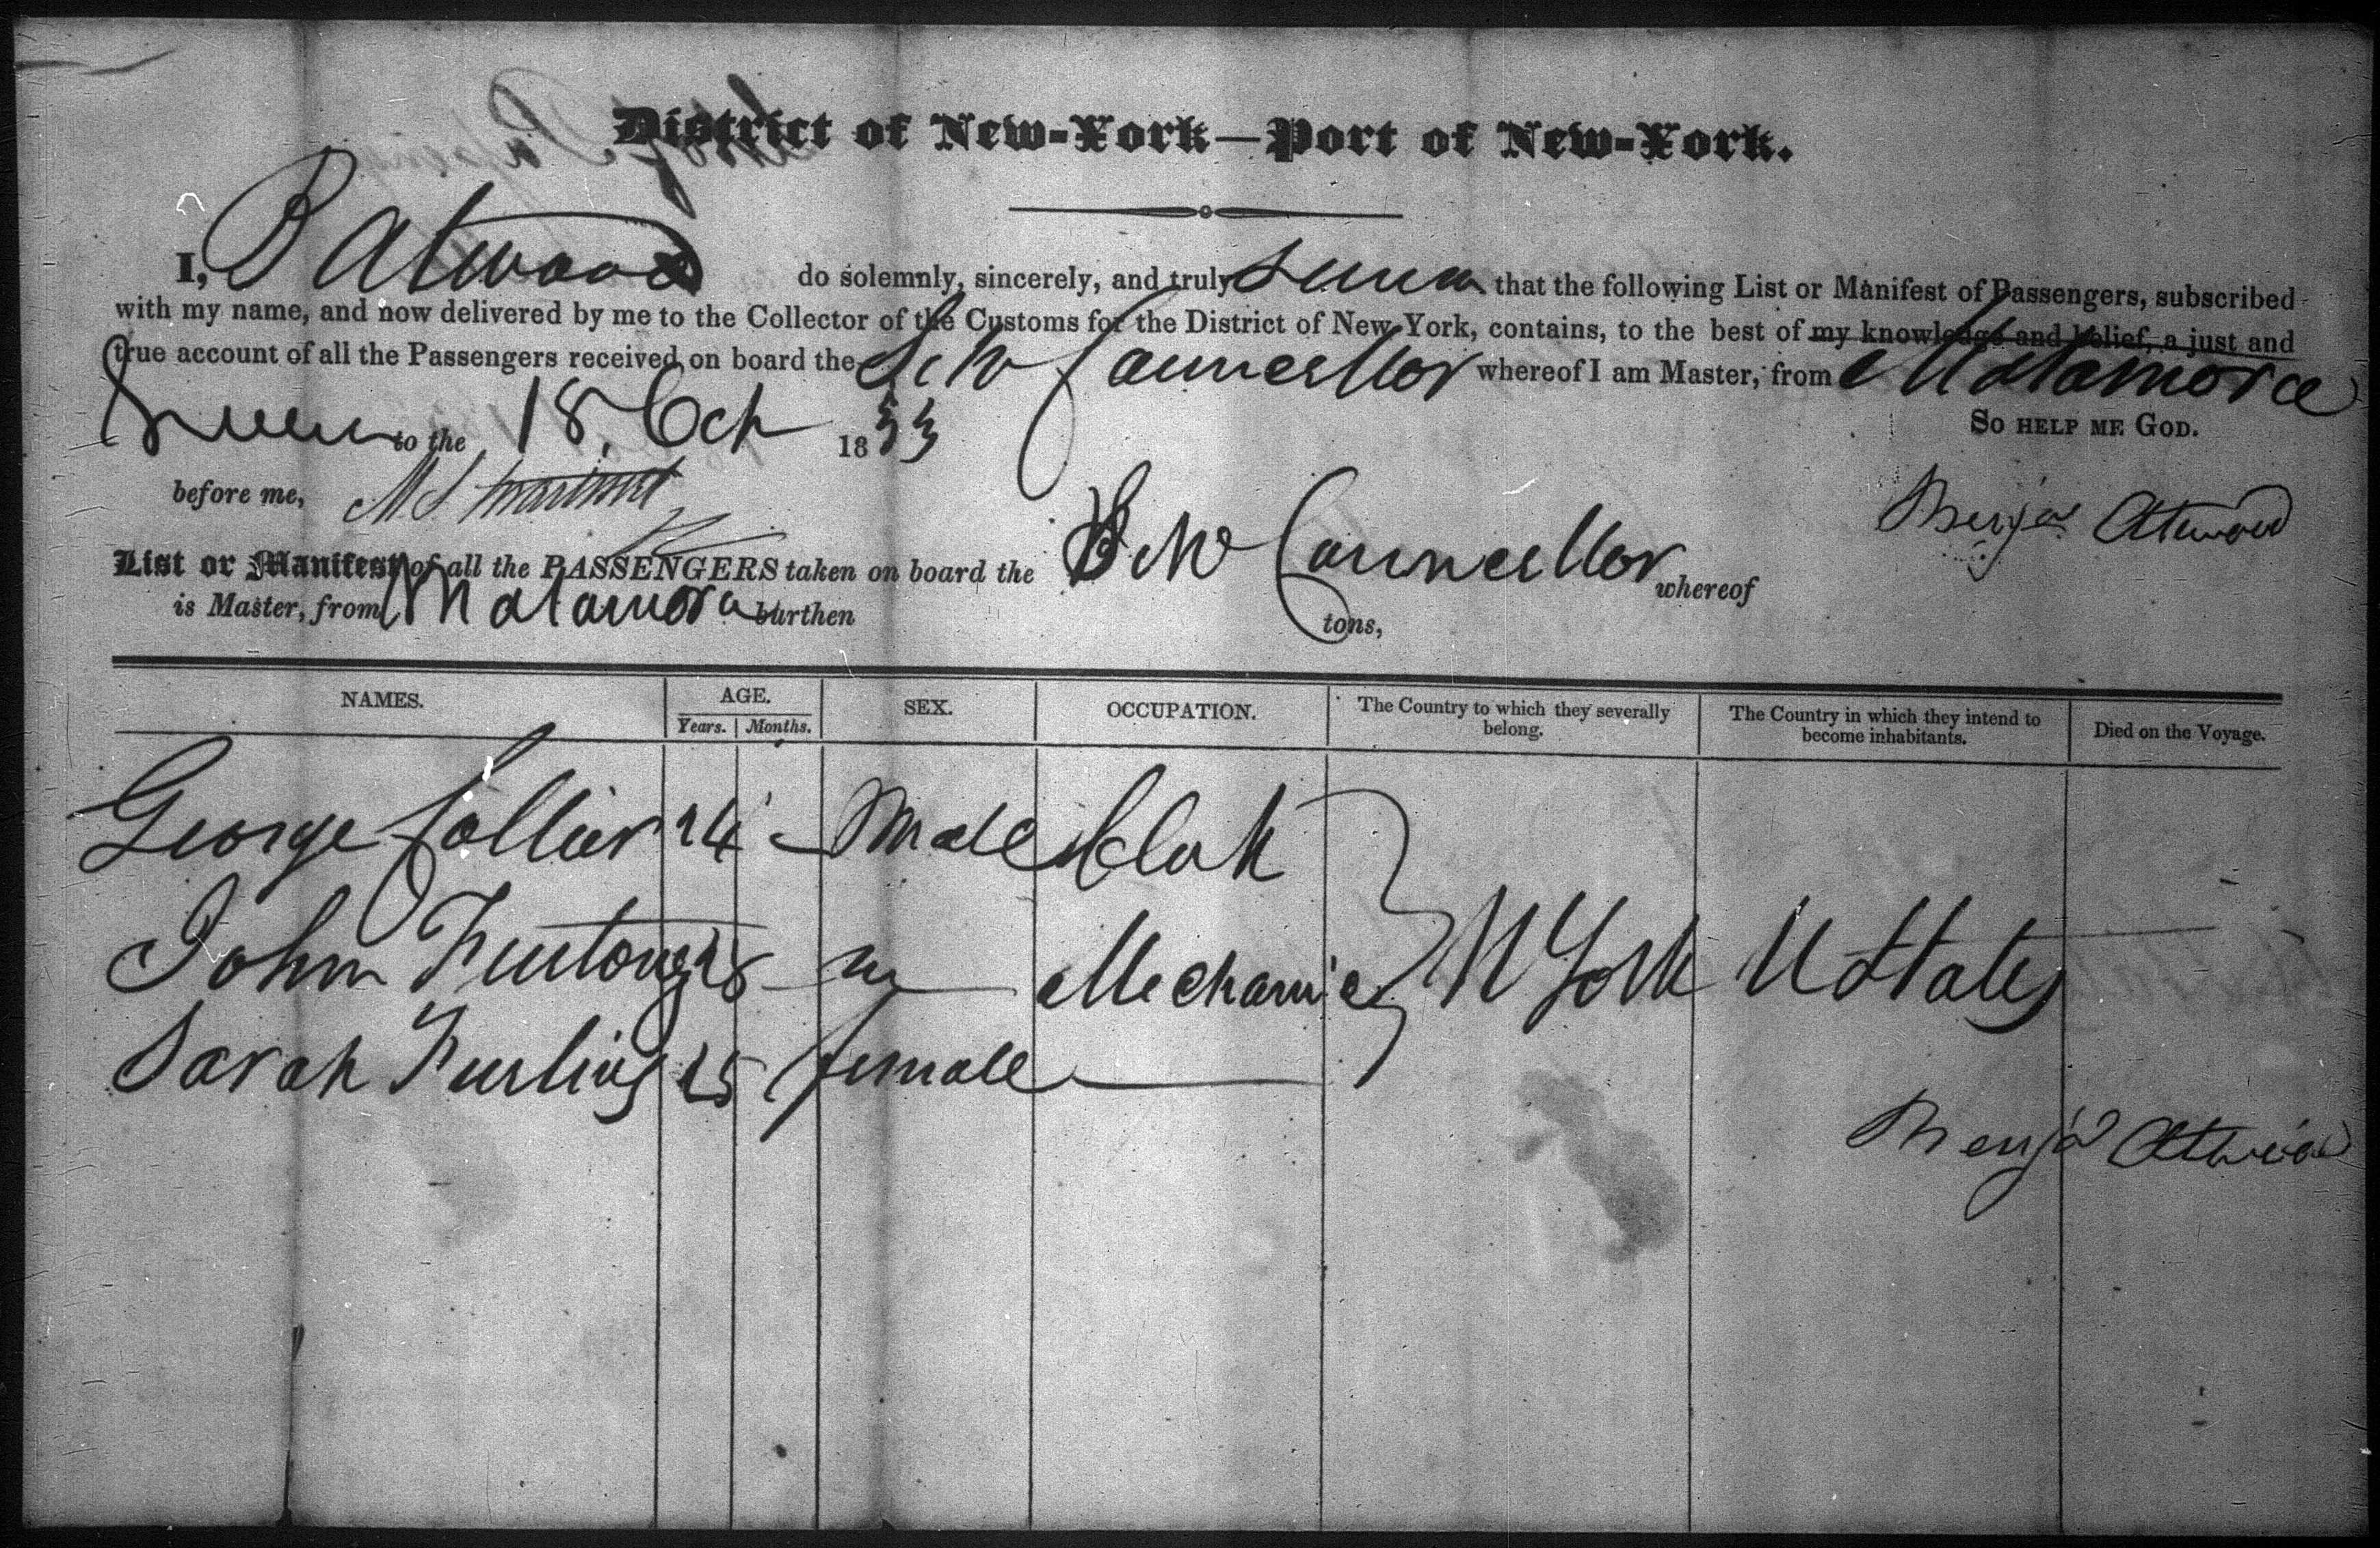 District of New-York—Port of New-York.
I, B Atwood do solemnly, sincerely, and truly swear that the following List or Manifest of Passengers, subscribed
with my name, and now delivered by me to the Collector of the Customs for the District of New York, contains, to the best of my knowledge and belief, a just and
true account of all the Passengers received on board the Schr Councellor whereof I am Master, from Matamora
Sworn to the 18. Oct 1833
So help me God.
before me,
Benja Atwood
List or Manifest of all the PASSENGERS taken on board the Schr Councellor whereof
is Master, from Matamora burthen tons,
NAMES. AGE. SEX. OCCUPATION. The Country to which they severally belong. The Country in which they intend to become inhabitants. Died on the Voyage.
Years. Months.
George Collier 24 Male Clerk
John 28 m Mechanic N York U States
Sarah Furling 25 female
Benja Atwood